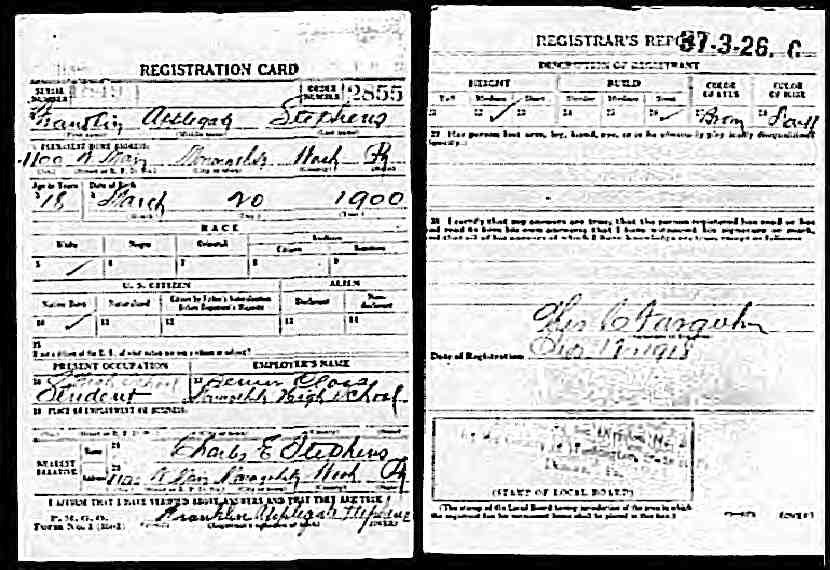 REGISTRATION CARD
SERIAL NUMBER
ORDER NUMBER 2855
Franklin Applegate Stephens
(First name) (Middle name) (Last name)
PERMANENT HOME ADDRESS:
1100 W Main Monongahela Wash Pa
Age in Years Date of Birth
18 March 20 1900
(Month) (Day) (Year)
RACE
White Negro Oriental Indian
Citizen Noncitizen
5 ✓ 6 7 8 9
U. S. CITIZEN ALIEN
Native Born Naturalized Citizen by Father's Naturalization Before Registrant's Majority Declarant Non-declarant
10 ✓ 11 12 13 14
15
If not a citizen of the U. S., of what nation are you a citizen or subject?
PRESENT OCCUPATION EMPLOYER'S NAME
Student Senior Class
High School
18 PLACE OF EMPLOYMENT OR BUSINESS:
NEAREST RELATIVE
Name Charles E Stephens
Address 1100 W Main Monongahela Wash Pa
I AFFIRM THAT I HAVE VERIFIED ABOVE ANSWERS AND THAT THEY ARE TRUE
P. M. G. O.
Form No. 1 (Red) Franklin Applegate Stephens
(Registrant's signature or mark) (OVER)
REGISTRAR'S REPORT
37-3-26. C
DESCRIPTION OF REGISTRANT
HEIGHT BUILD COLOR OF EYES COLOR OF HAIR
Tall Medium Short Slender Medium Stout
21 22 ✓ 23 24 25 26 ✓ 27 Brown 28 Dark
29 Has person lost arm, leg, hand, eye, or is he obviously physically disqualified?
(Specify.)
30 I certify that my answers are true; that the person registered has read or has
had read to him his own answers; that I have witnessed his signature or mark,
and that all of his answers of which I have knowledge are true, except as follows:
Date of Registration
(STAMP OF LOCAL BOARD)
(The stamp of the Local Board having jurisdiction of the area in which
the registrant has his permanent home shall be placed in this box.)
(OVER)